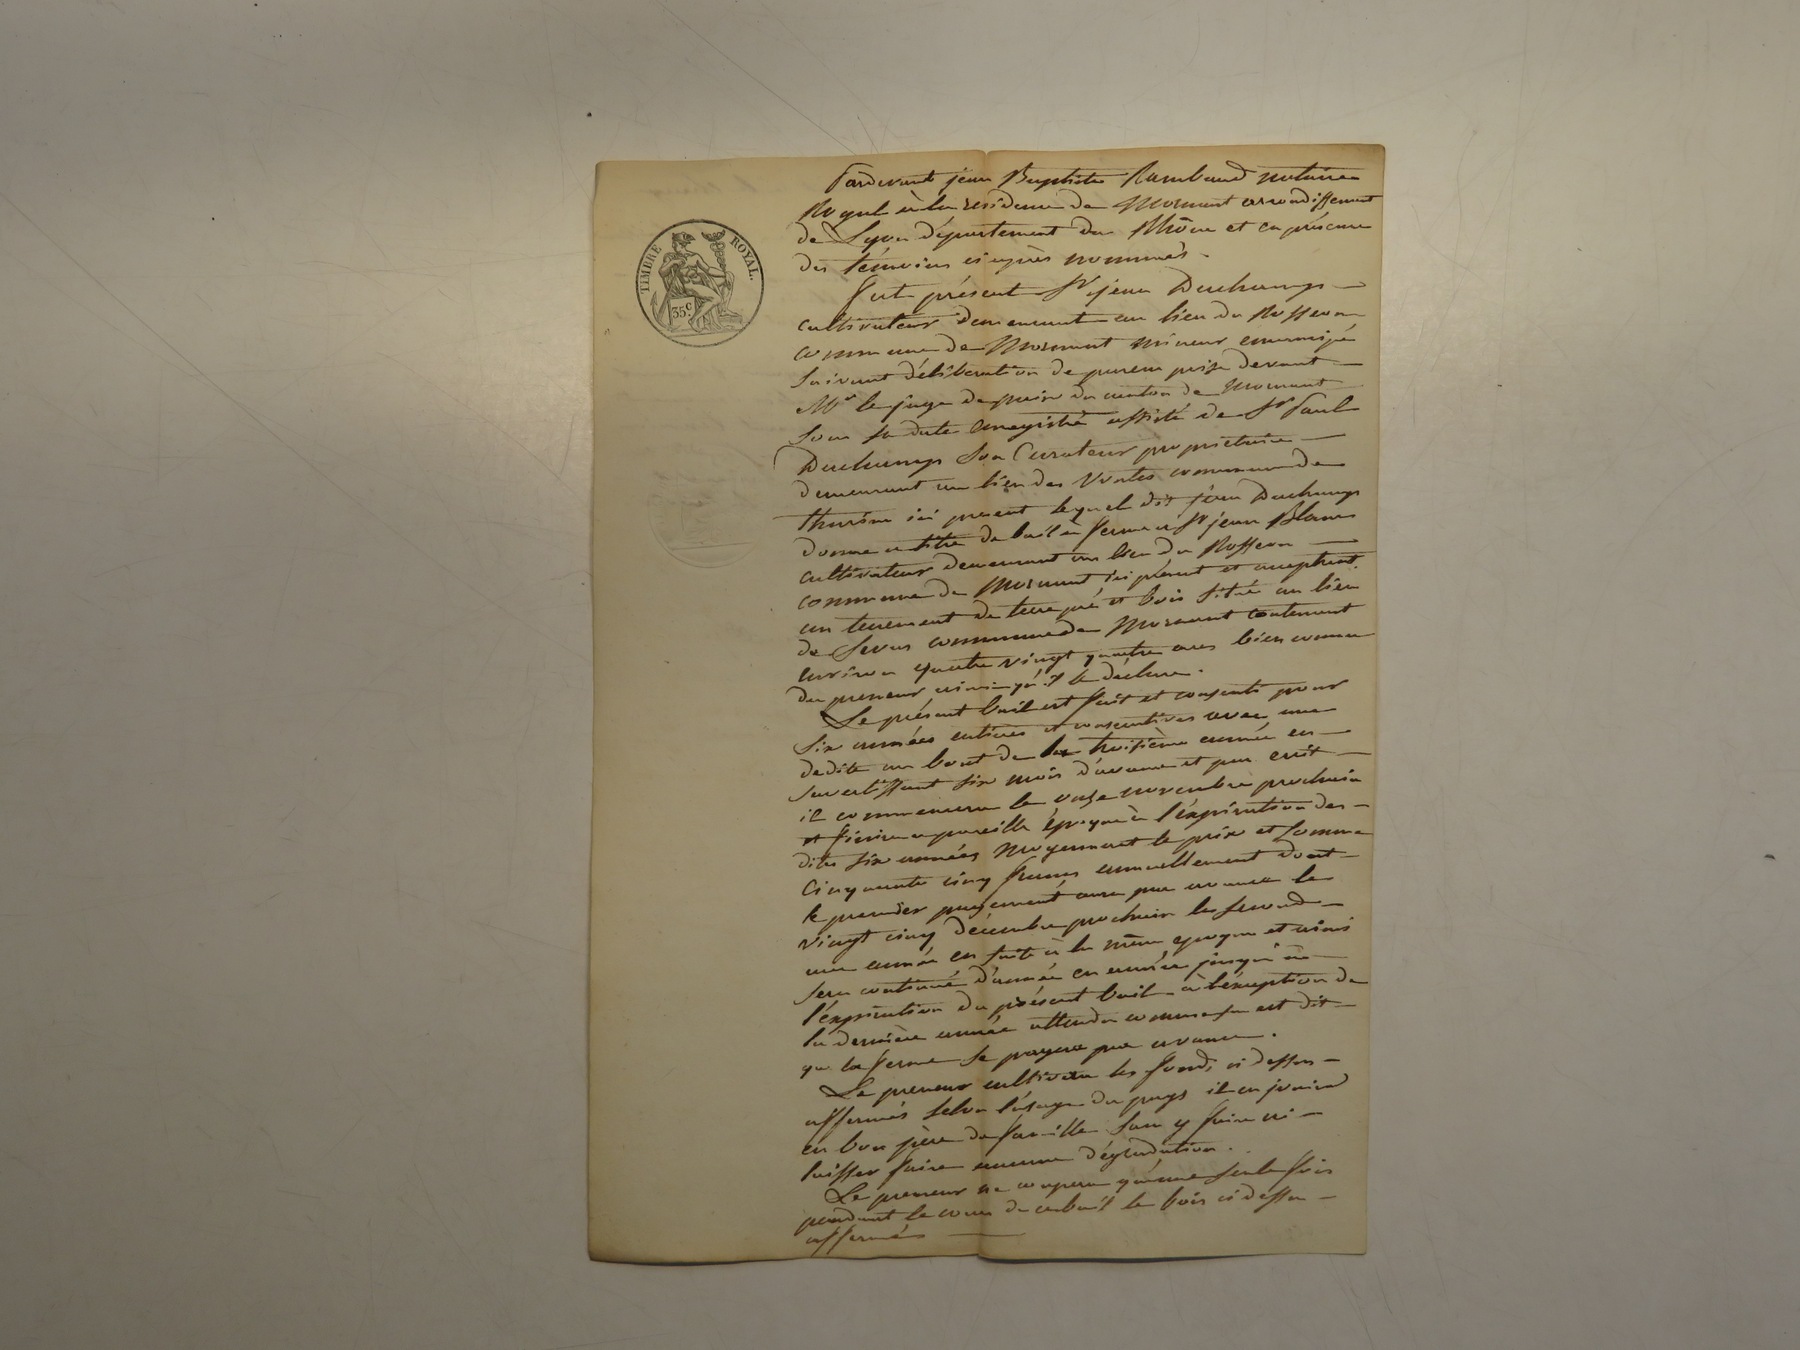 TIMBRE ROYAL.
35 c.
Pardevant jean Baptiste Rambaud notaire
Royal à la résidence de Mornant arrondissement
de Lyon département du Rhône et en présence
des témoins ci après nommés.
fut présent Sr jean Duchamp
cultivateur demeurant au lieu du Rosseon
commune de Mornant mineur émancipé
suivant délibération de parens prise devant
Mr le juge de paix du canton de Mornant
sous sa date enregistré assisté de Sr Paul
Duchamp son Curateur propriétaire
demeurant au lieu des commune de
thurins ici présent lequel dit jean Duchamp
donne a titre de bail à ferme a Sr jean Blanc
cultivateur demeurant au lieu du Rosseon
commune de Mornant ici présent et acceptant
un tenement de terre pré et bois situé au lieu
de commune de Mornant contenant
environ quatre vingt quatre ares bien connu
du preneur ainsi qu'il le déclare.
Le présent bail est fait et consenti pour
six années entières et consécutives avec une
dedite au bout de la troisième année en
s'avertissant six mois d'avance et par écrit
il commencera le onze novembre prochain
et finira a pareille époque à l'éxpiration des
dites six années moyennant le prix et somme
cinquante cinq francs annuellement dont
le premier payement aura par avance le
vingt cinq décembre prochain le second
une année en suite à la même époque et ainsi
sera continué d'année en année jusqu'à
l'éxpiration du présent bail à l'éxception de
la dernière année attendu comme ça est dit
que la ferme se payera par avance.
Le preneur cultivera les fonds ci dessus
affermés selon l'usage du pays il en jouira
en bon père de famille sans y faire ni
laisser faire aucune dégradation.
Le preneur ne coupera qu'une seule fois
pendant le cours de ce bail le bois ci dessus
affermés